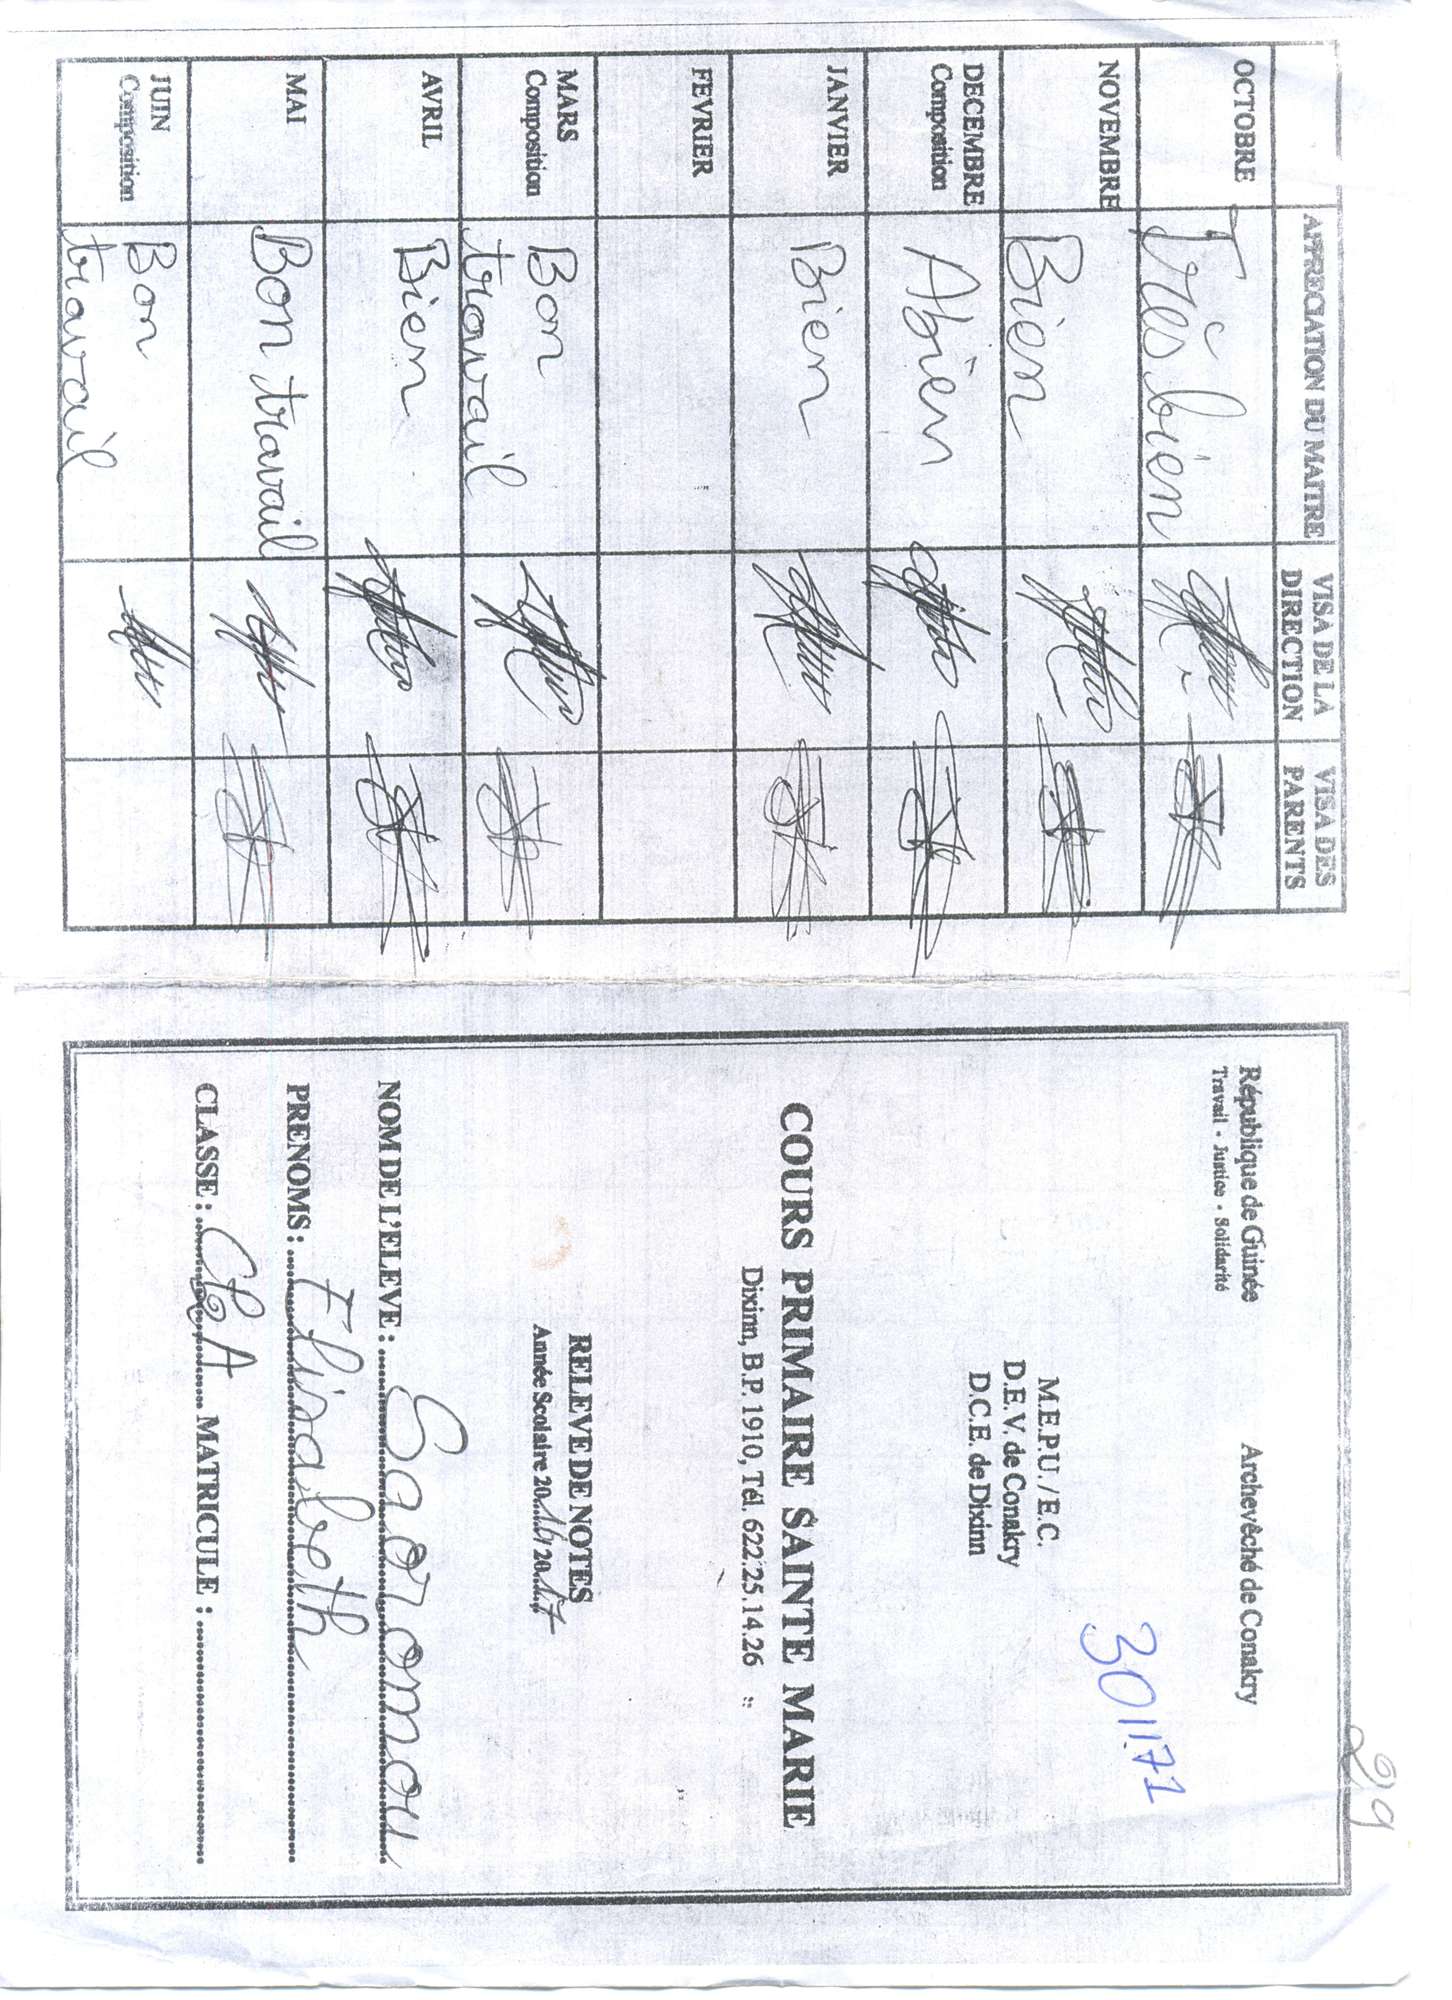 APPRECIATION DU MAITRE
VISA DE LA DIRECTION
VISA DES PARENTS
OCTOBRE
Très bien
NOVEMBRE
Bien
DECEMBRE
Composition
Abien
JANVIER
Bien
FEVRIER
MARS
Composition
Bon
travail
AVRIL
Bien
MAI
Bon travail
JUIN
Composition
Bon
travail
29
République de Guinée
Travail - Justice - Solidarité
Archevêché de Conakry
301171
M.E.P.U. / E.C.
D.E.V. de Conakry
D.C.E. de Dixinn
COURS PRIMAIRE SAINTE MARIE
Dixinn, B.P. 1910, Tél. 622.25.14.26
RELEVE DE NOTES
Année Scolaire 2016/ 2017
NOM DE L'ELEVE : Saoromou
PRENOMS : Elisabeth
CLASSE : CP2 A MATRICULE :